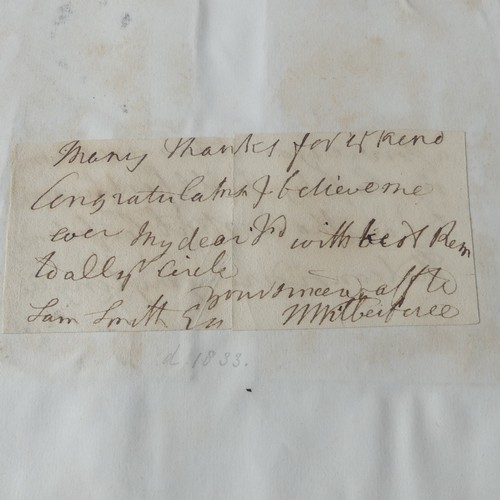 Many Thanks for yr kind
Congratulatns & believe me
ever My dear Sir with best Rem
to all yr Circle
yours sincery affte
Sam Smith Esq W Wilberforce
d. 1833.